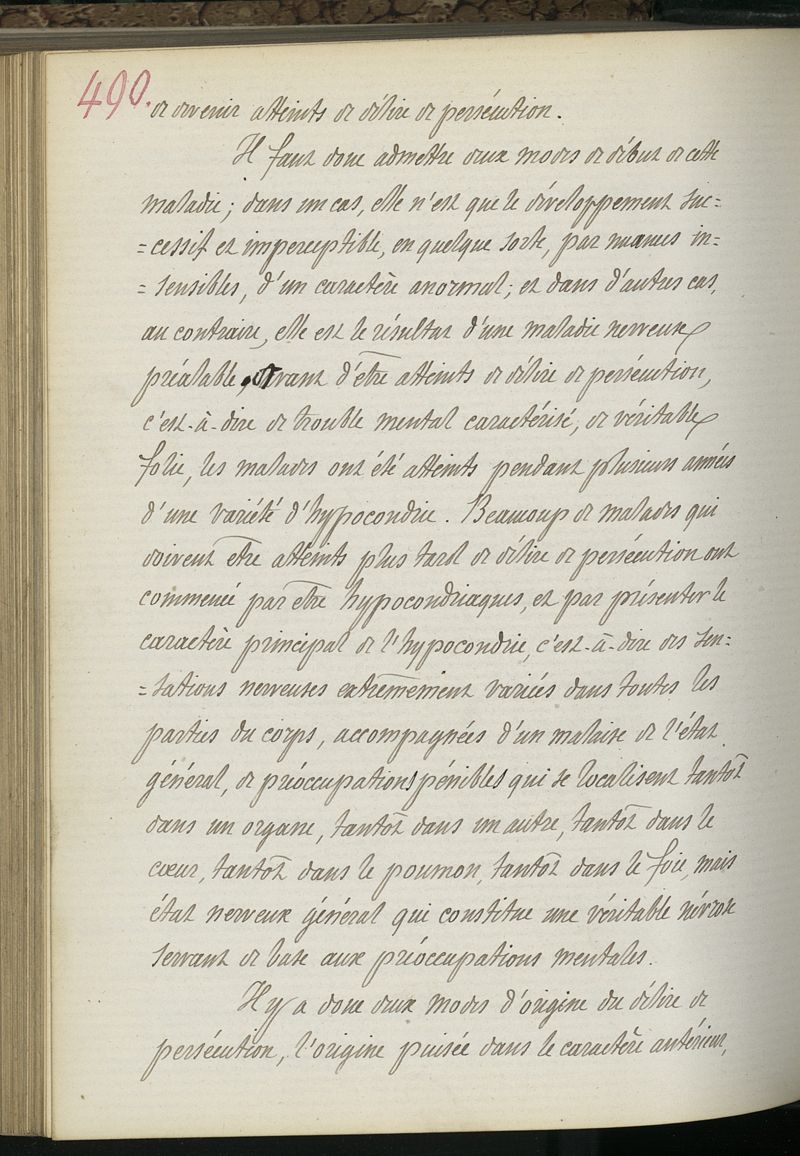 490.
de devenir atteints de délire de persécution.
Il faut donc admettre deux modes de début de cette
maladie ; dans un cas, elle n'est que le développement suc=
=cessif et imperceptible, en quelque sorte, par nuances in=
=sensibles, d'un caractère anormal ; et dans d'autres cas,
au contraire, elle est le résultat d'une maladie nerveuse
préalable, avant d'être atteints de délire de persécution,
c'est-à-dire de trouble mental caractérisé, de véritable
folie, les malades ont été atteints pendant plusieurs années
d'une variété d'hypocondrie. Beaucoup de malades qui
doivent être atteints plus tard de délire de persécution ont
commencé par être hypocondriaques, et par présenter le
caractère principal de l'hypocondrie, c'est-à-dire des sen=
=sations nerveuses extrêmement variées dans toutes les
parties du corps, accompagnées d'un malaise de l'état
général, de préoccupations pénibles qui se localisent tantôt
dans un organe, tantôt dans un autre, tantôt dans le
cœur, tantôt dans le poumon, tantôt dans le foie, mais
état nerveux général qui constitue une véritable névrose
servant de base aux préoccupations mentales.
Il y a donc deux modes d'origine du délire de
persécution, l'origine puisée dans le caractère antérieur,